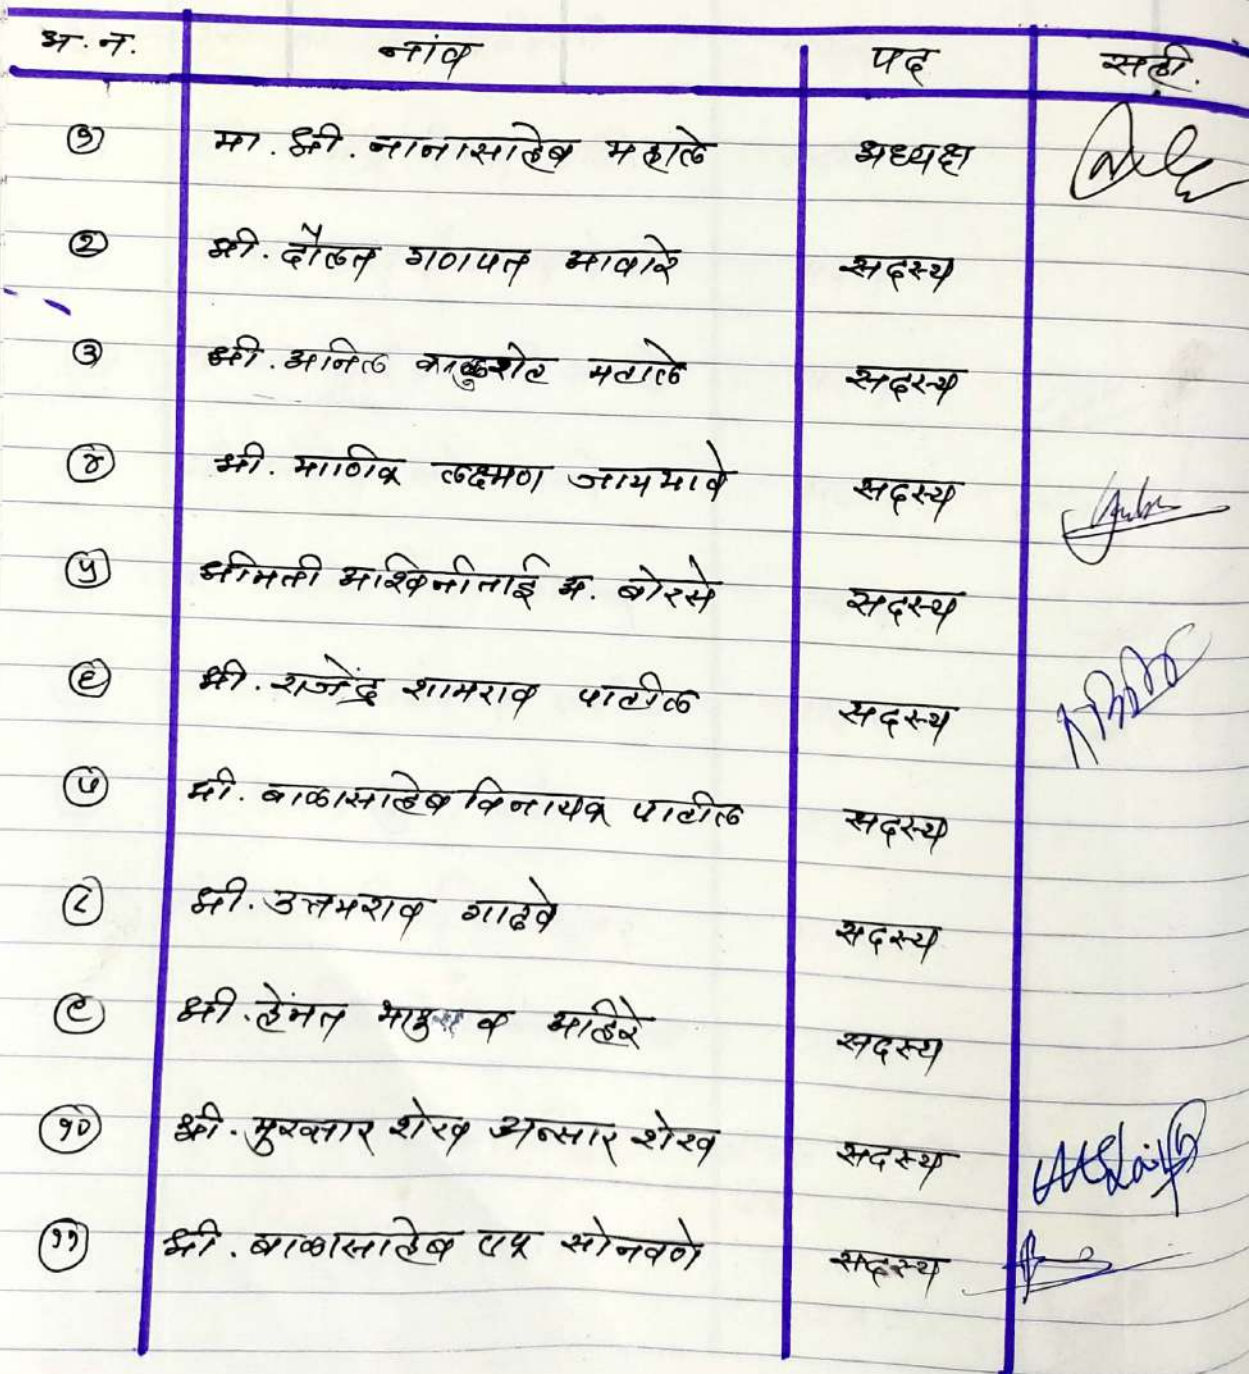 अ.न. नांव पद सही.
१ मा. श्री. नानासाहेब महाले अध्यक्ष
२ श्री. दौलत गणपत आवारे सदस्य
३ श्री. अनिल काळुशेठ महाले सदस्य
४ श्री. माणिक लक्ष्मण जायभावे सदस्य
५ श्रीमती आश्विनीताई अ. बोरसे सदस्य
६ श्री. राजेंद्र शामराव पाटील सदस्य
७ श्री. बाळासाहेब विनायक पाटील सदस्य
८ श्री. उत्तमराव गाढवे सदस्य
९ श्री. हेंमत आहिरे सदस्य
१० श्री. मुख्तार शेख अन्सार शेख सदस्य
११ श्री. बाळासाहेब सोनवणे सदस्य